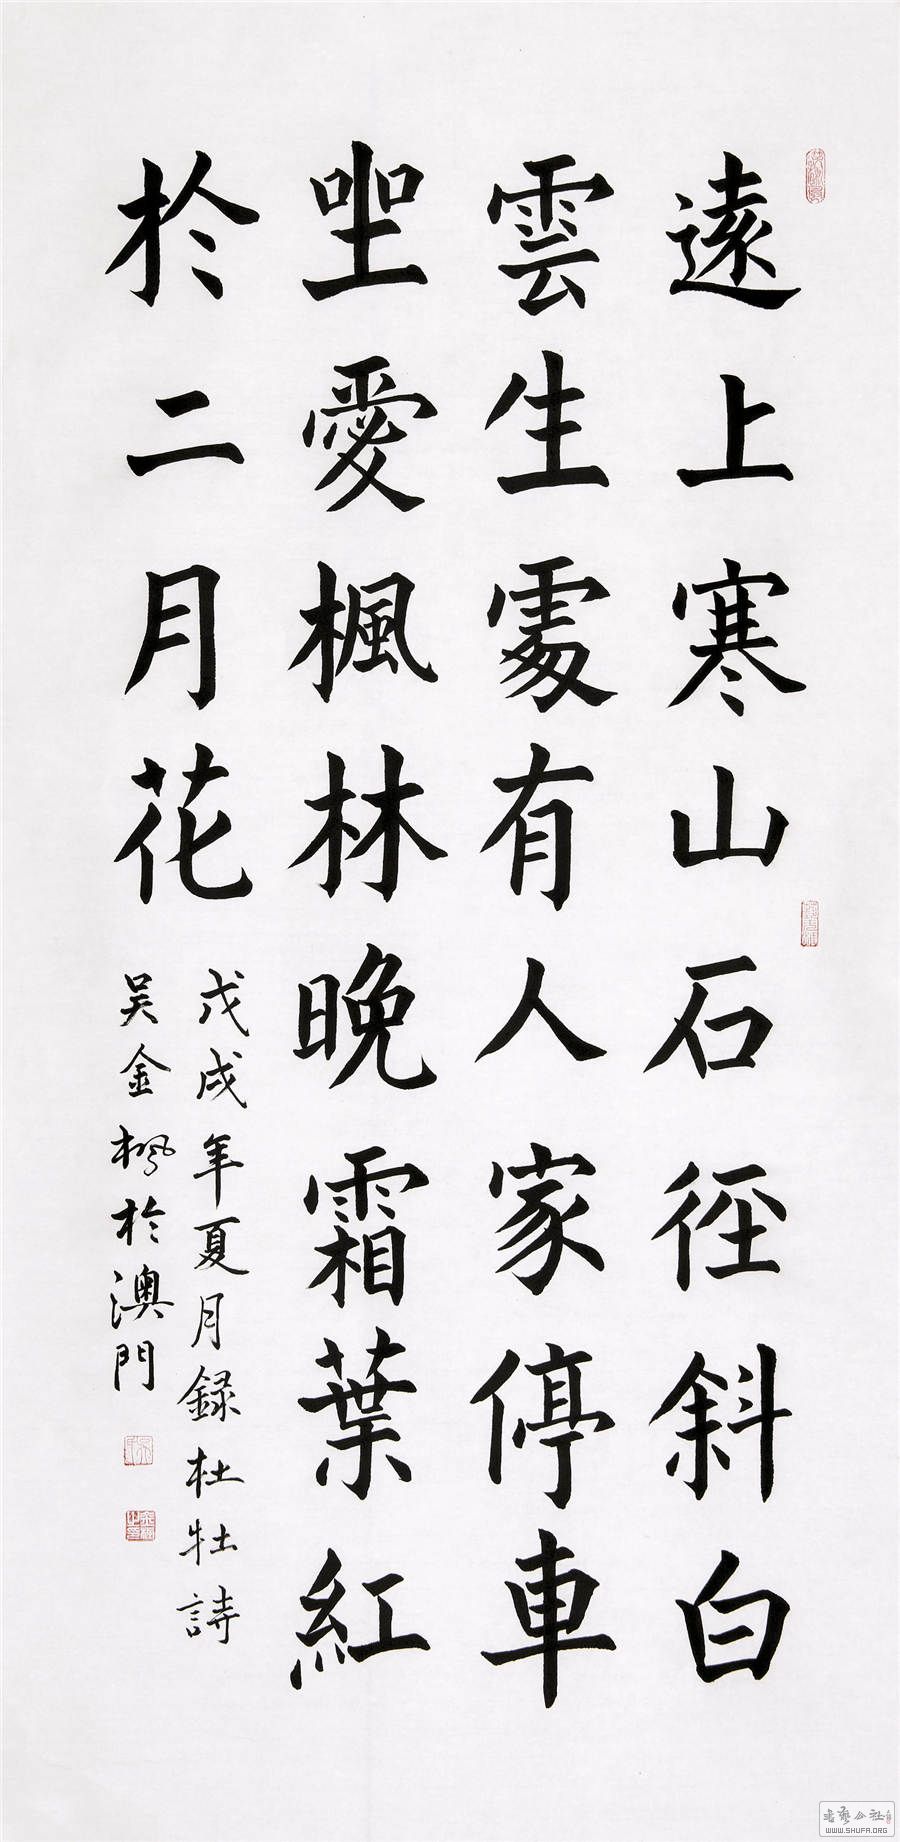 遠上寒山石徑斜白
雲生處有人家停車
坐愛楓林晚霜葉紅
於二月花
戊戌年夏月録杜牡詩
吴金楓於澳門
WWW.SHUFA.ORG